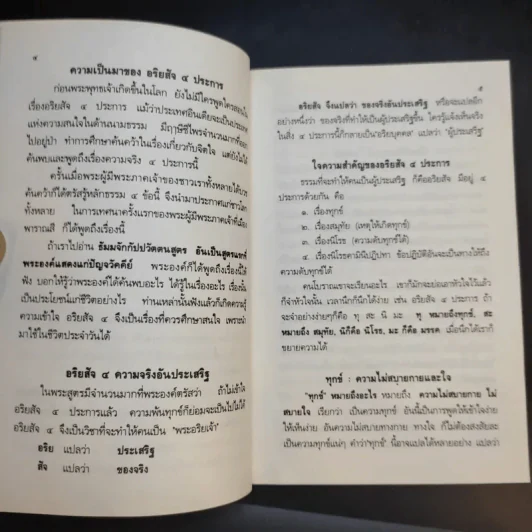 ๔
ความเป็นมาของ อริยสัจ ๔ ประการ
ก่อนพระพุทธเจ้าเกิดขึ้นในโลก ยังไม่มีใครพูดใครสอนใน
เรื่องอริยสัจ ๔ ประการ แม้ว่าประเทศอินเดียจะเป็นประเทศ
แห่งความสนใจในด้านนามธรรม มีฤาษีชีไพรจำนวนมากที่
ไปอยู่ป่า ทำการศึกษาค้นคว้าในเรื่องเกี่ยวกับจิตใจ แต่ยังไม่ได้
ค้นพบและพูดถึงเรื่องความจริง ๔ ประการนี้
ครั้นเมื่อพระผู้มีพระภาคเจ้าของชาวเราทั้งหลายได้
ค้นคว้าก็ได้ตรัสรู้หลักธรรม ๔ ข้อนี้ จึงนำมาประกาศแก่ชาวโลก
ทั้งหลาย ในการเทศนาครั้งแรกของพระผู้มีพระภาคเจ้าที่เมือง
พาราณสี ก็ได้พูดถึงเรื่องนี้
ถ้าเราไปอ่าน ธัมมจักกัปปวัตตนสูตร อันเป็นสูตรแรกที่
พระองค์แสดงแก่ปัญจวัคคีย์ พระองค์ก็ได้พูดถึงเรื่องนี้ให้
ฟัง บอกให้รู้ว่าพระองค์ได้ค้นพบอะไร ได้รู้ในเรื่องอะไร เรื่องนั้น
เป็นประโยชน์แก่ชีวิตอย่างไร ท่านเหล่านั้นฟังแล้วก็เกิดความรู้
ความเข้าใจ อริยสัจ ๔ จึงเป็นเรื่องที่ควรศึกษาสนใจ เพราะนำ
มาใช้ในชีวิตประจำวันได้
อริยสัจ ๔ ความจริงอันประเสริฐ
ในพระสูตรมีจำนวนมากที่พระองค์ตรัสว่า ถ้าไม่เข้าใจ
อริยสัจ ๔ ประการแล้ว ความพ้นทุกข์ก็ย่อมจะเป็นไปไม่ได้
อริยสัจ ๔ จึงเป็นวิชาที่จะทำให้คนเป็น "พระอริยเจ้า"
อริย แปลว่า ประเสริฐ
สัจ แปลว่า ของจริง
๕
อริยสัจ จึงแปลว่า ของจริงอันประเสริฐ หรือจะแปลอีก
อย่างหนึ่งว่า ของจริงที่ทำให้เป็นผู้ประเสริฐขึ้น ใครรู้แจ้งเห็นจริง
ในสิ่ง ๔ ประการนี้ก็กลายเป็น"อริยบุคคล" แปลว่า "ผู้ประเสริฐ"
ใจความสำคัญของอริยสัจ ๔ ประการ
ธรรมที่จะทำให้คนเป็นผู้ประเสริฐ ก็คืออริยสัจ มีอยู่ ๔
ประการด้วยกัน คือ
๑. เรื่องทุกข์
๒. เรื่องสมุทัย (เหตุให้เกิดทุกข์)
๓. เรื่องนิโรธ (ความดับทุกข์ได้)
๔. เรื่องนิโรธคามินีปฏิปทา ข้อปฏิบัติอันจะเป็นทางให้ถึง
ความดับทุกข์ได้
คนโบราณเขาจะเรียนอะไร เขาก็มักจะย่อเอาหัวใจไว้แล้ว
ก็จำหัวใจนั้น เวลานึกก็นึกได้ง่าย เช่น อริยสัจ ๔ ประการ ถ้า
จะจำอย่างง่ายๆก็คือ ทุ สะ นิ มะ ทุ หมายถึงทุกข์, สะ
หมายถึง สมุทัย, นิก็คือ นิโรธ, มะ ก็คือ มรรค เมื่อนึกได้เราก็
ขยายความได้
ทุกข์ : ความไม่สบายกายและใจ
"ทุกข์" หมายถึงอะไร หมายถึง ความไม่สบายกาย ไม่
สบายใจ เรียกว่า เป็นความทุกข์ อันนี้เป็นการพูดให้เข้าใจง่าย
ให้เห็นง่าย อันความไม่สบายทางกาย ทางใจ ก็ไม่ต้องสงสัยละ
เป็นความทุกข์แน่ๆ คำว่า"ทุกข์" นี้อาจแปลได้หลายอย่าง แปลว่า